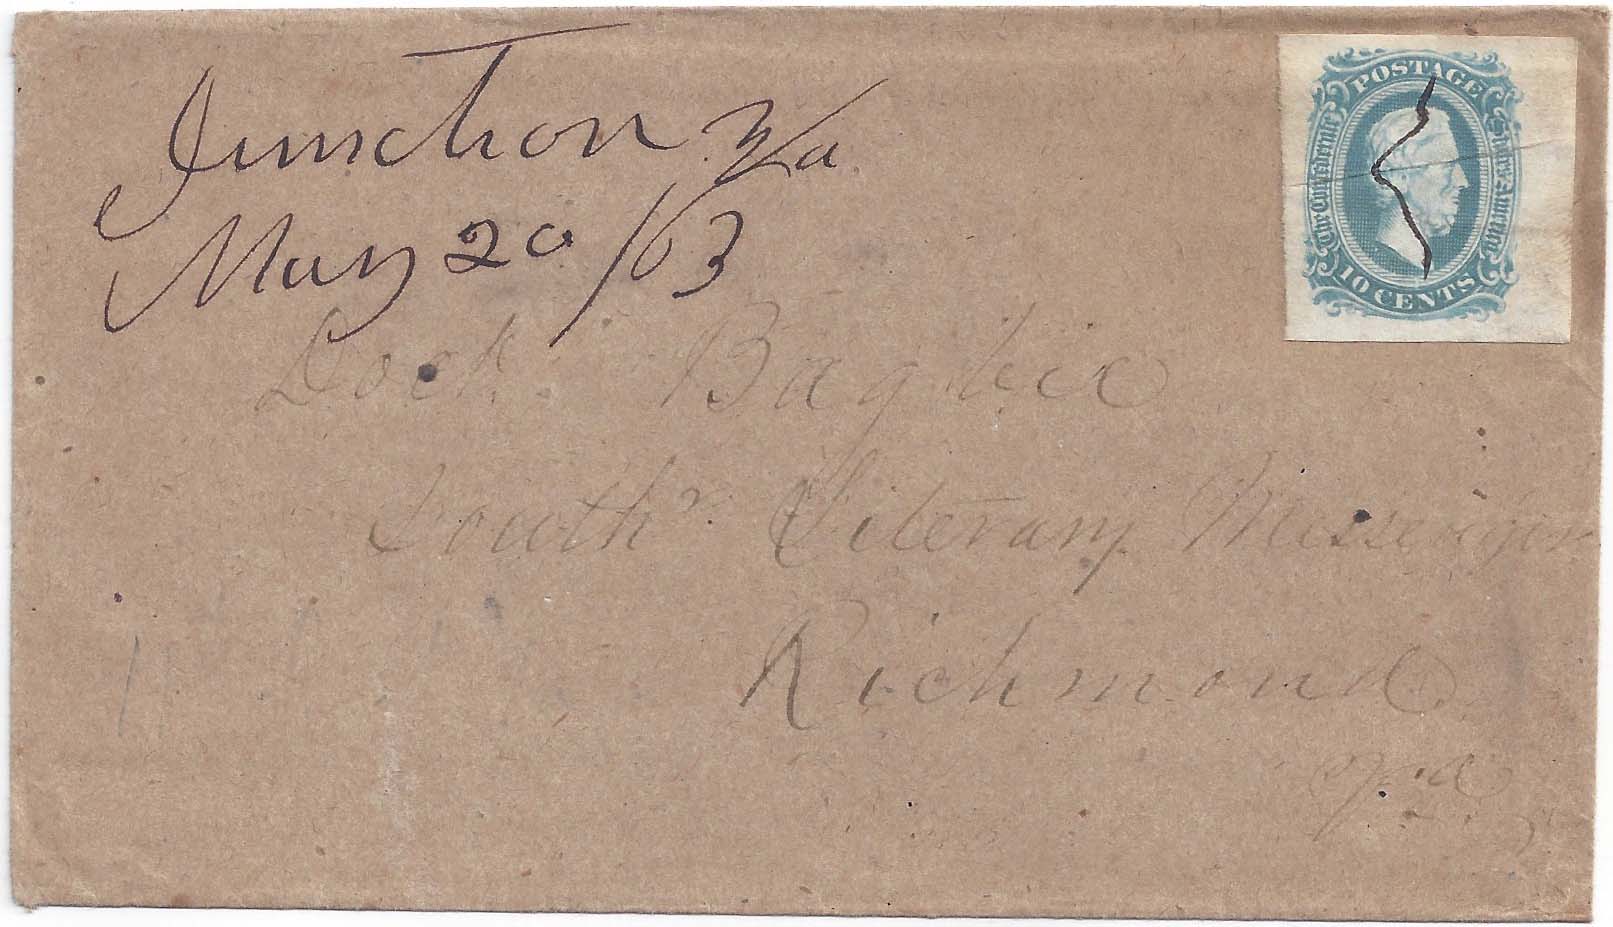 Junction Va
May 20/63
POSTAGE
The Confederate States of America
10 CENTS
Dock Bagbie
South<sup>r</sup> Literary Messenger
Richmond
Va